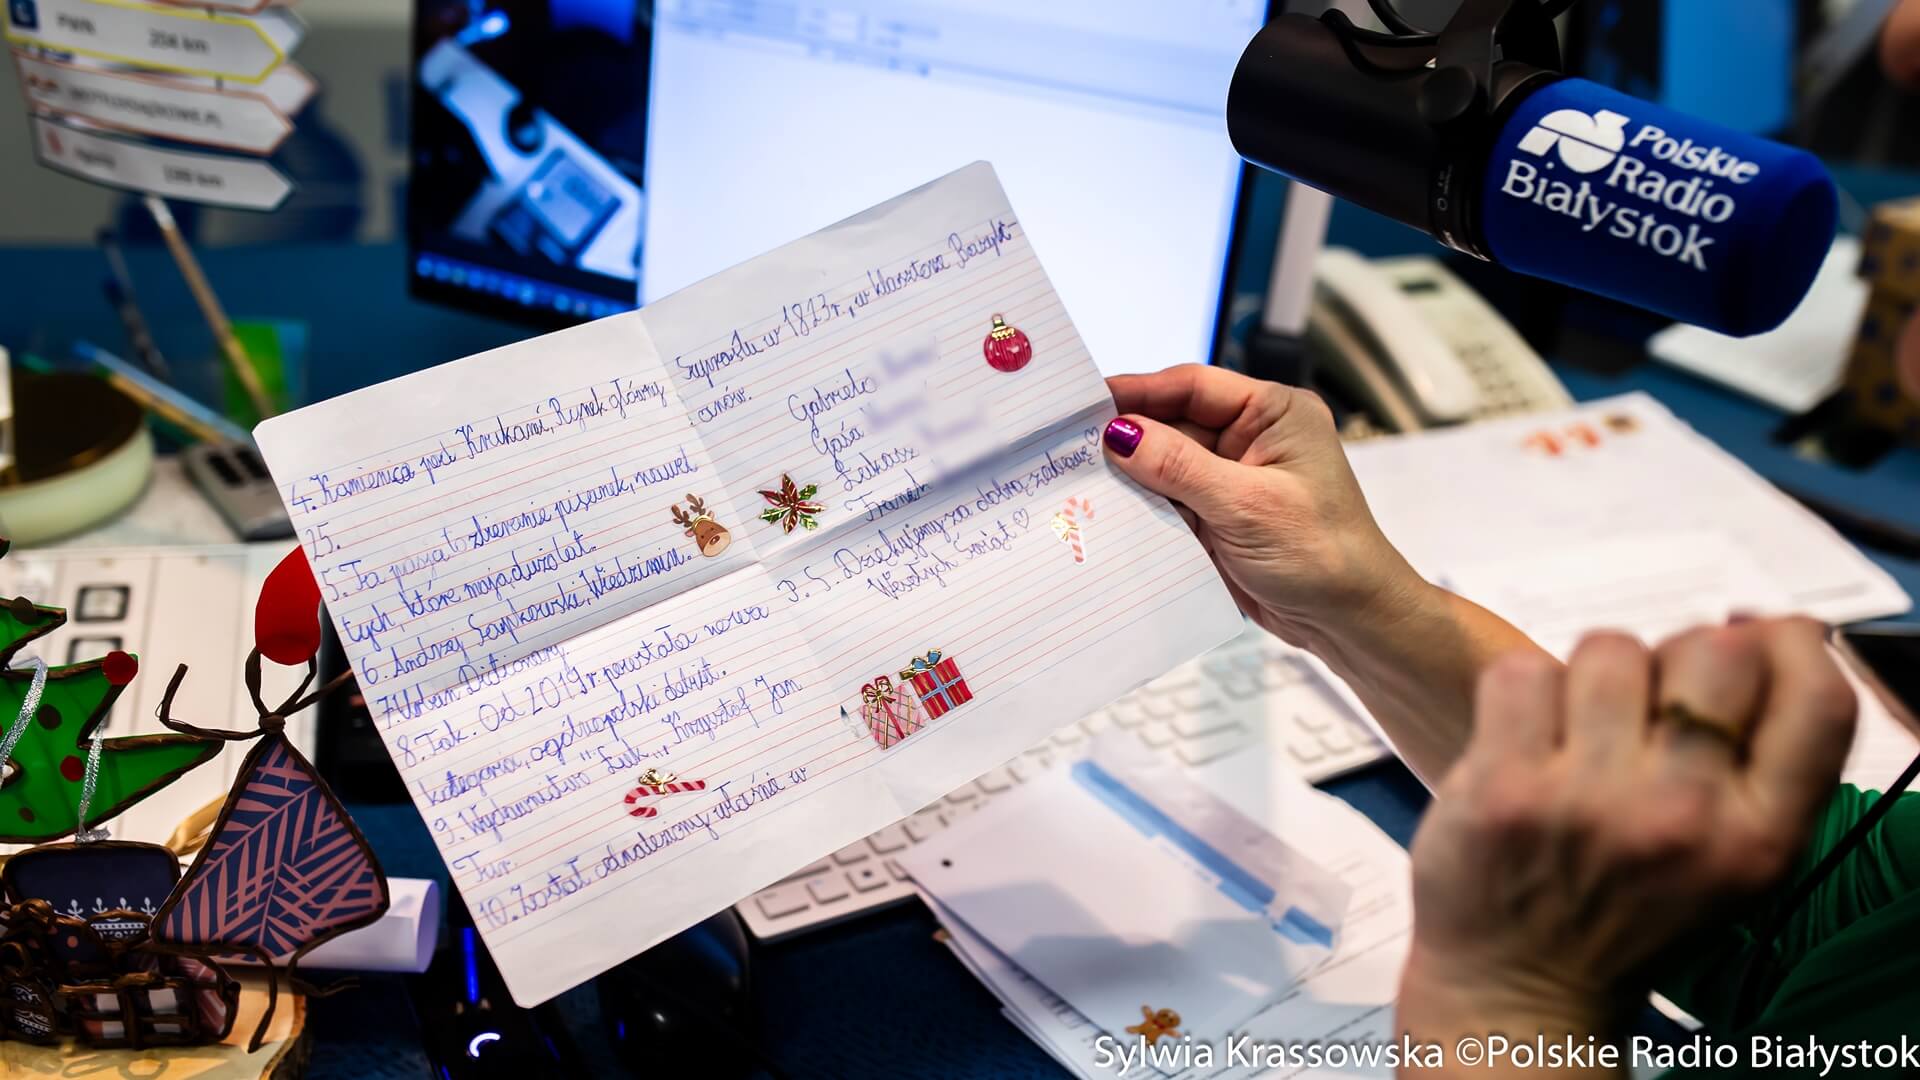 PWN 204 km
199 km
Polskie
Radio
Białystok
4. Kamienica pod Krukami, Rynek główny
25.
5. Ta pasja to zbieranie pisanek, nawet
tych, które mają dużo lat.
6. Andrzej Sapkowski, Wiedźmin.
7. Urban Dictionary.
8. Tak. Od 2019 r. powstała nowa
kategoria, ogólnopolski debiut.
9. Wydawnictwo "Łuk", Krzysztof Jan
10. Został odnaleziony właśnie w
Supraślu w 1823 r., w klasztorze Bazyli-
anów.
Gabriela
Gosia
Łukasz
Franek
P. S. Dziękujemy za dobrą zabawę! ♡
Wesołych Świąt ♡
Sylwia Krassowska ©Polskie Radio Białystok